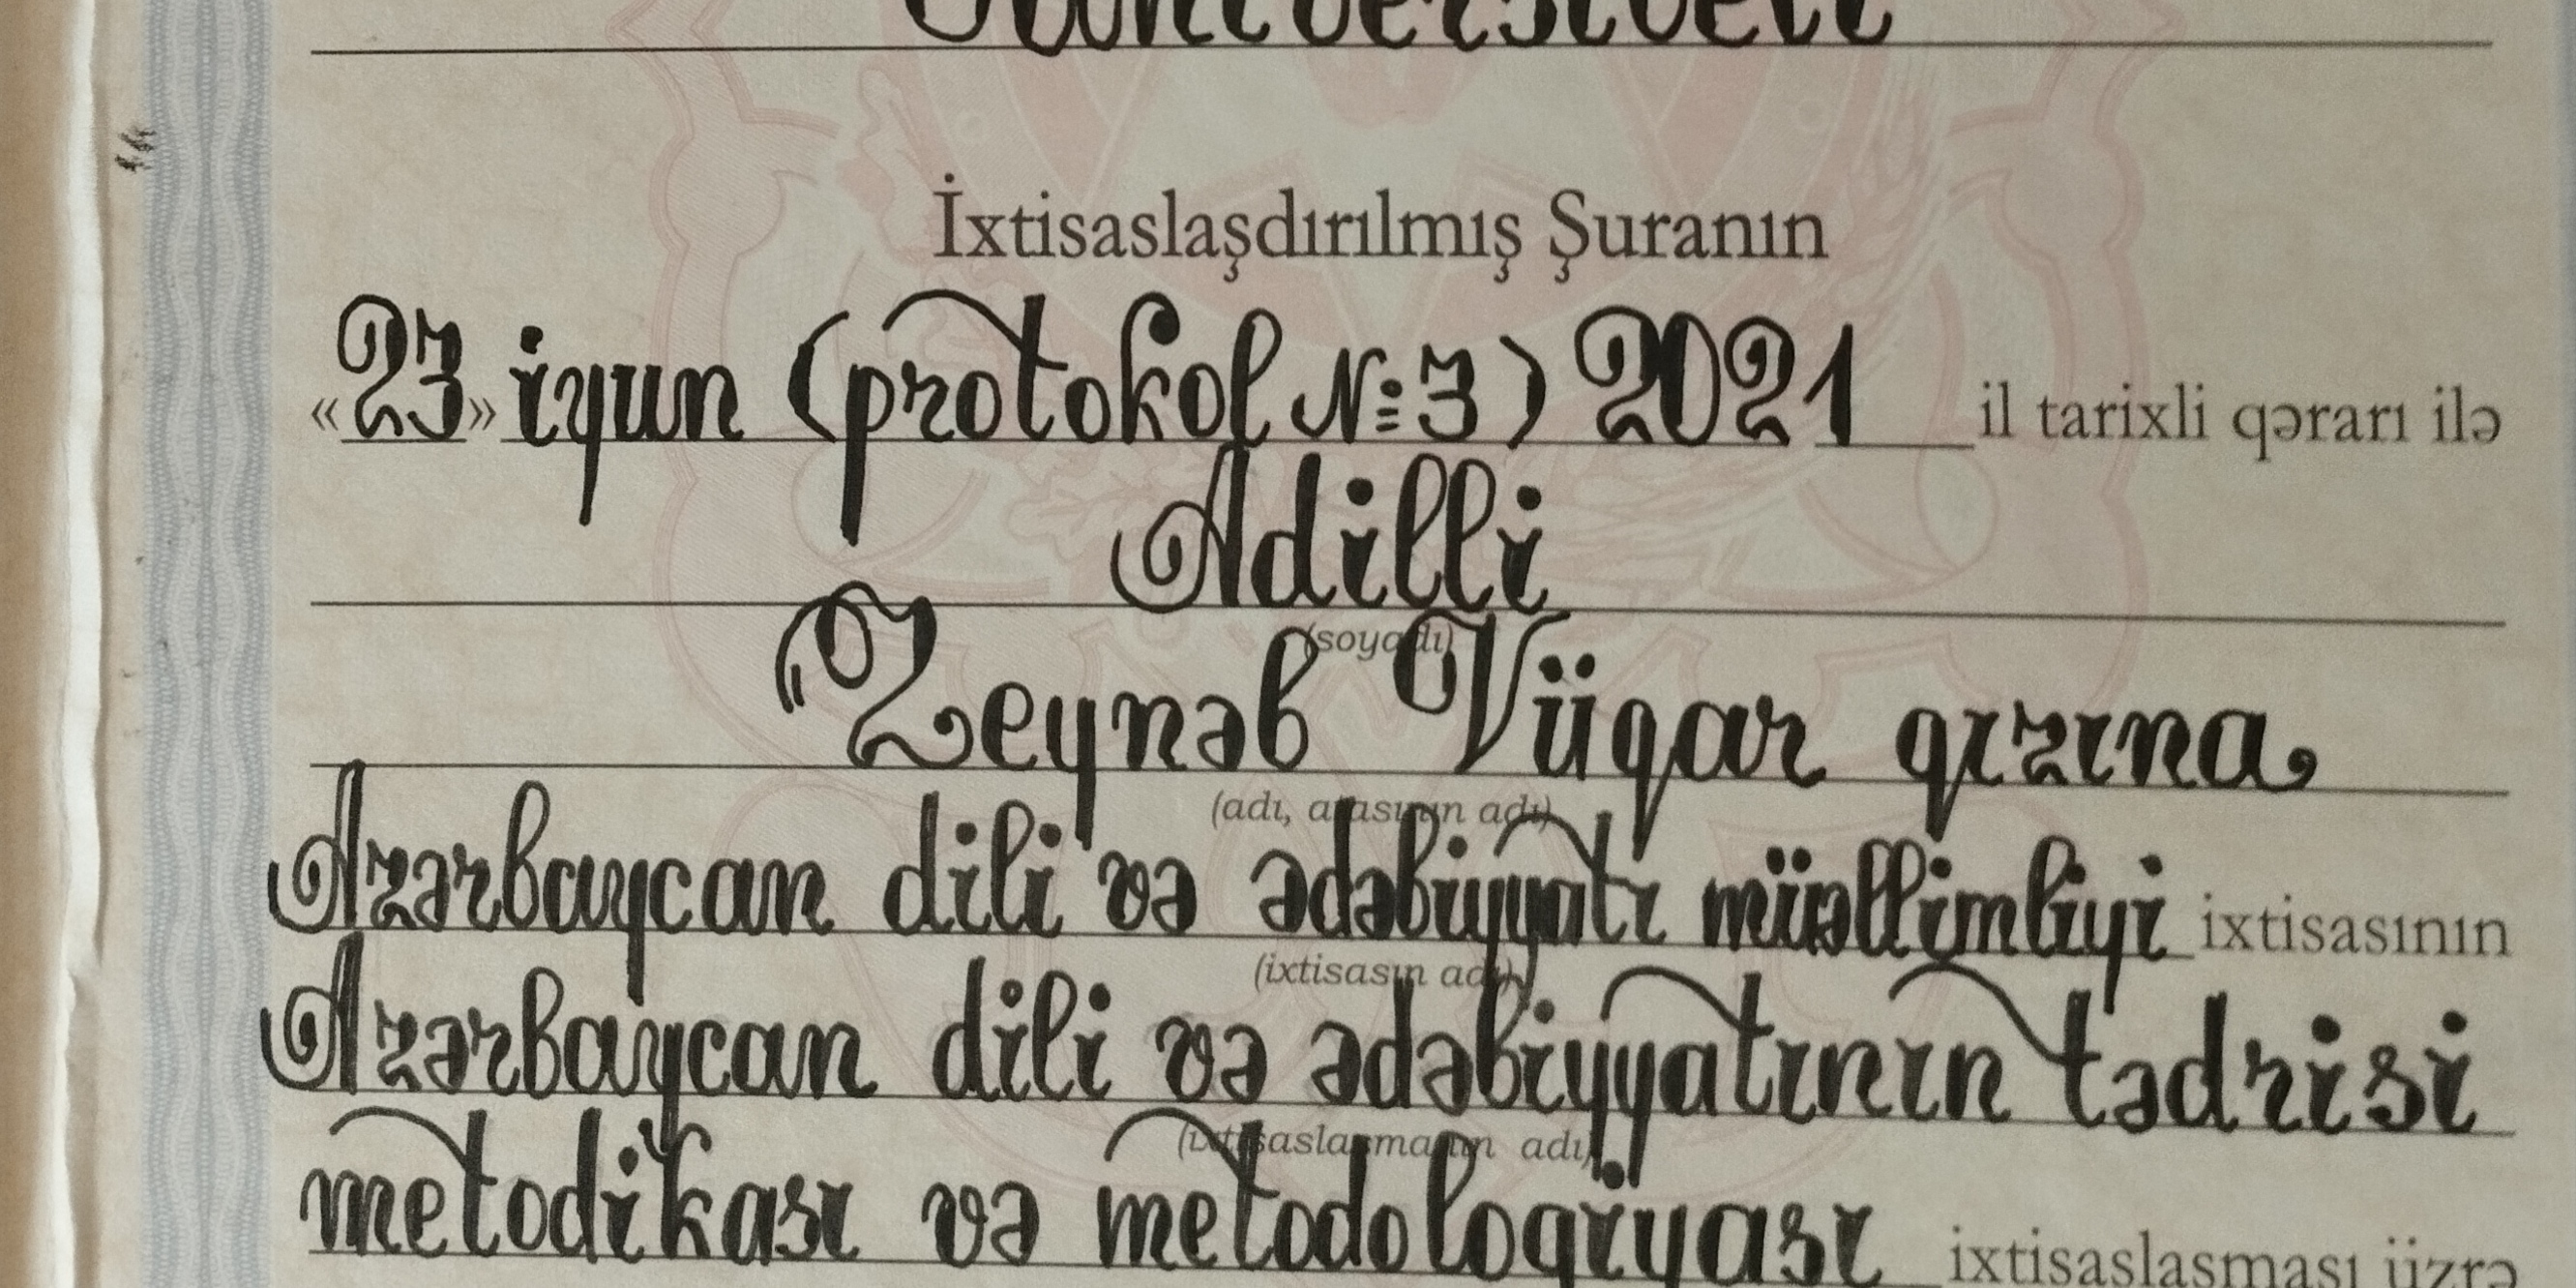 Universiteti
İxtisaslaşdırılmış Şuranın
«23» iyun (protokol №3) 2021 il tarixli qərarı ilə
Adilli
(soyadı)
Zeynəb Vüqar qızına,
(adı, atasının adı)
Azərbaycan dili və ədəbiyyatı müəllimliyi ixtisasının
(ixtisasın adı)
Azərbaycan dili və ədəbiyyatının tədrisi
(ixtisaslaşmanın adı)
metodikası və metodologiyası ixtisaslaşması üzrə